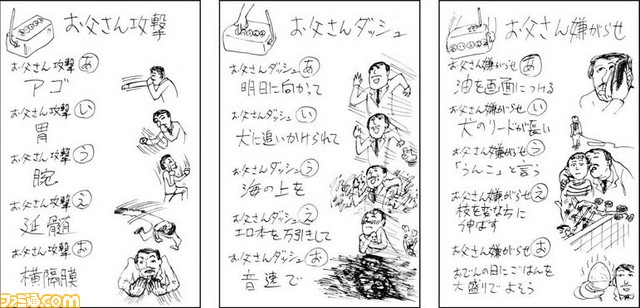 お父さん攻撃
お父さん攻撃 あ
アゴ
お父さん攻撃 い
胃
お父さん攻撃 う
腕
お父さん攻撃 え
延髄
お父さん攻撃 お
横隔膜
お父さんダッシュ
お父さんダッシュ あ
明日に向かって
お父さんダッシュ い
犬に追いかけられて
お父さんダッシュ う
海の上を
お父さんダッシュ え
エロ本を万引きして
お父さんダッシュ お
音速で
お父さん嫌がらせ
お父さん嫌がらせ あ
油を画面につける
お父さん嫌がらせ い
犬のリードが長い
お父さん嫌がらせ う
「うんこ」と言う
お父さん嫌がらせ え
枝を変なカに
伸ばす
お父さん嫌がらせ お
おでんの日にごはんを
大盛りでよそう
ファミ通.com